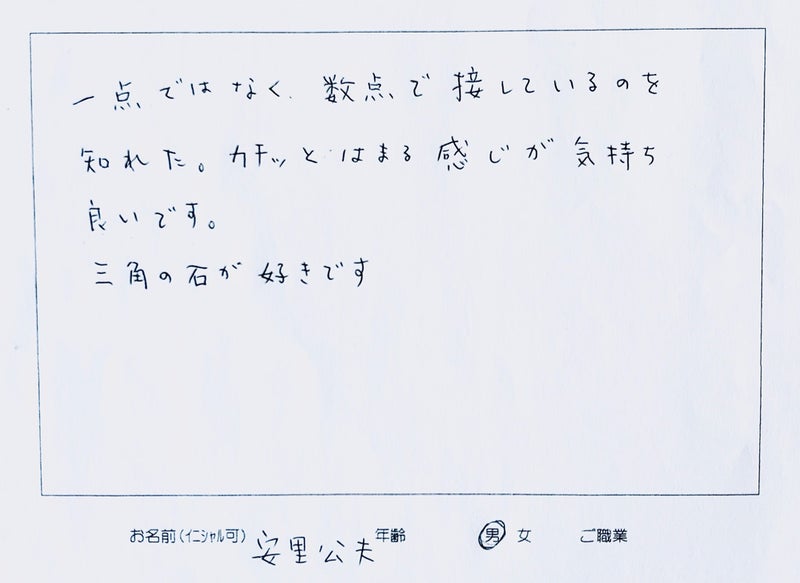 一点ではなく、数点で接しているのを
知れた。カチッとはまる感じが気持ち
良いです。
三角の石が好きです
お名前(イニシャル可) 安里公夫 年齢 男 女 ご職業